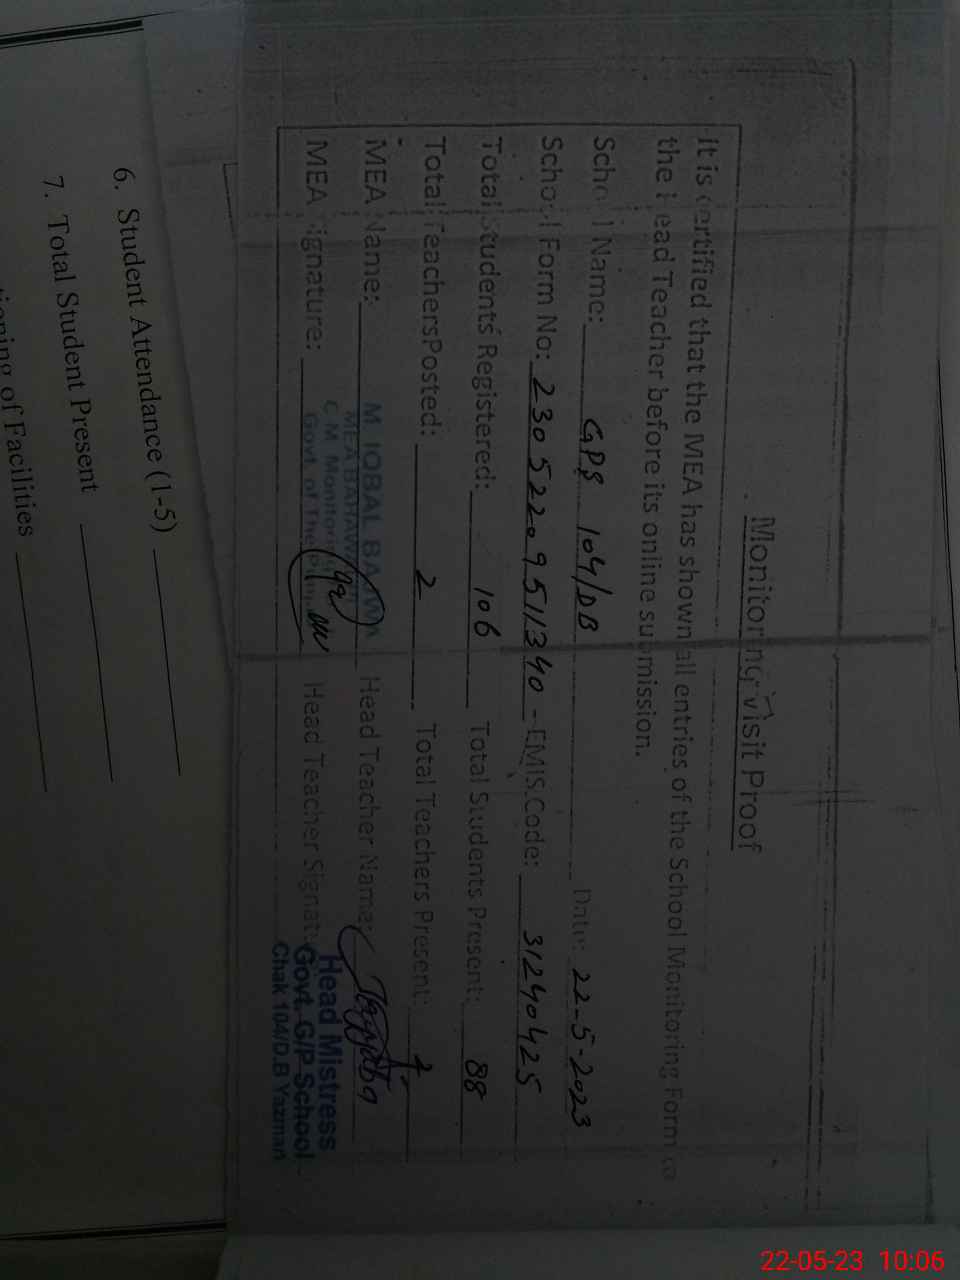 Monitoring Visit Proof
It is certified that the MEA has shown all entries of the School Monitoring Form to
the Head Teacher before its online submission.
School Name: GPS 104/DB Date: 22-5-2023
School Form No: 23052209511340 - EMIS Code: 31240425
Total Students Registered: 106 Total Students Present: 88
Total TeachersPosted: 2 Total Teachers Present: 2
MEA Name: M IQBAL Head Teacher Name: Tayyaba
MEA BAHAWAL
MEA Signature: Head Teacher Signat
C M Monitoring
Govt. of The Punjab
Head Mistress
Govt. G/P School
Chak 104/D.B Yazman
6. Student Attendance (1-5)
7. Total Student Present
of Facilities
22-05-23 10:06